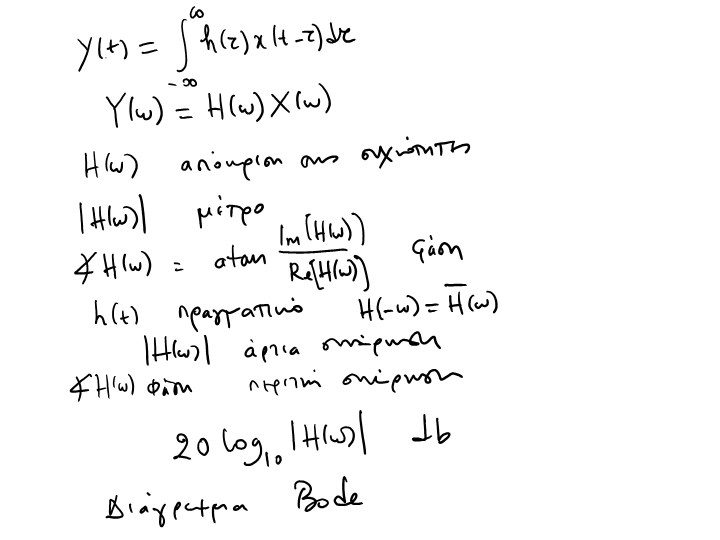 y(t) = ∫_{-∞}^{∞} h(τ) x(t-τ) dτ
Y(ω) = H(ω) X(ω)
H(ω) απόκριση στις συχνότητες
|H(ω)| μέτρο
∡H(ω) = atan Im{H(ω)} / Re{H(ω)} φάση
h(t) πραγματικό H(-ω) = H̅(ω)
|H(ω)| άρτια συνάρτηση
∡H(ω) φάση περιττή συνάρτηση
20 log₁₀ |H(ω)| db
Διάγραμμα Bode